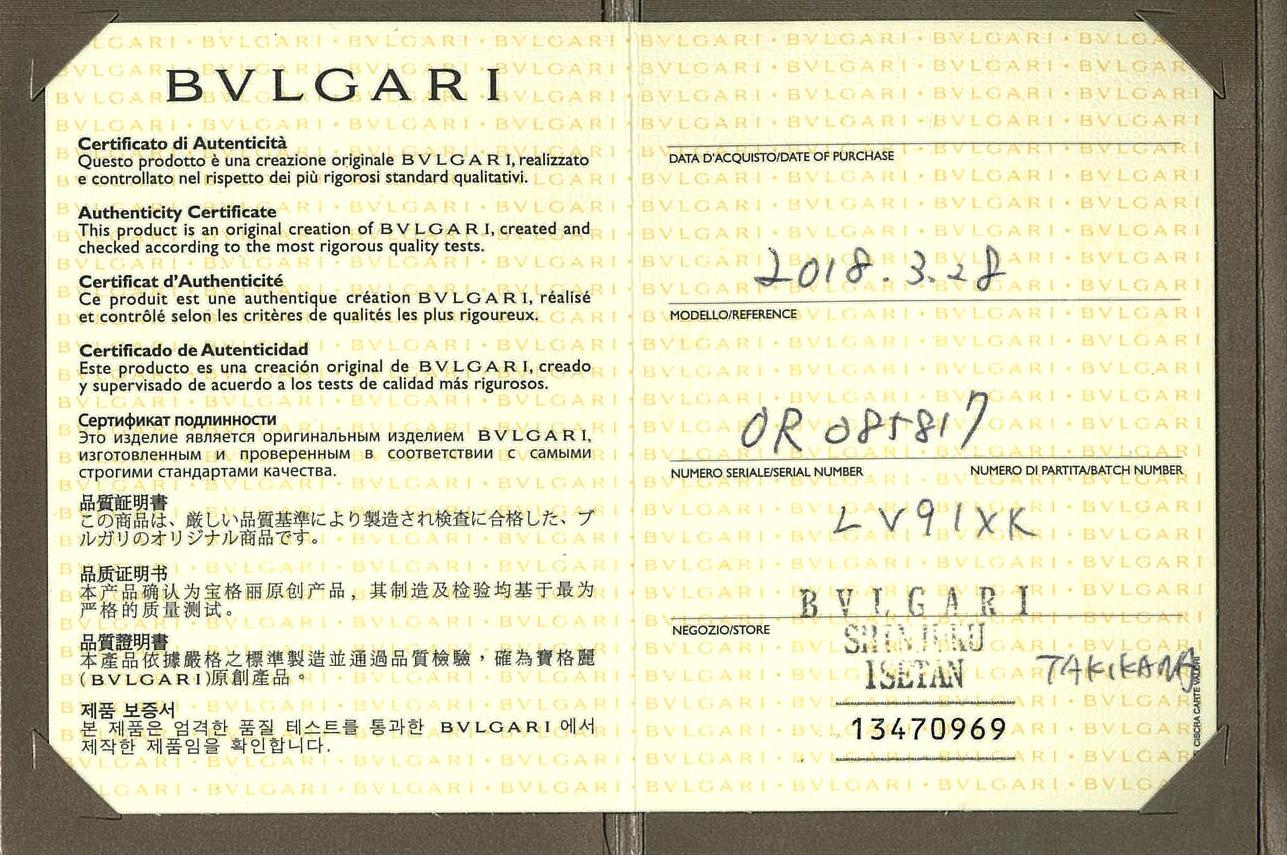 BVLGARI
Certificato di Autenticità
Questo prodotto è una creazione originale BVLGARI, realizzato
e controllato nel rispetto dei più rigorosi standard qualitativi.
Authenticity Certificate
This product is an original creation of BVLGARI, created and
checked according to the most rigorous quality tests.
Certificat d'Authenticité
Ce produit est une authentique création BVLGARI, réalisé
et contrôlé selon les critères de qualités les plus rigoureux.
Certificado de Autenticidad
Este producto es una creación original de BVLGARI, creado
y supervisado de acuerdo a los tests de calidad más rigurosos.
Сертификат подлинности
Это изделие является оригинальным изделием BVLGARI,
изготовленным и проверенным в соответствии с самыми
строгими стандартами качества.
品質証明書
この商品は、厳しい品質基準により製造され検査に合格した、ブ
ルガリのオリジナル商品です。
品质证明书
本产品确认为宝格丽原创产品，其制造及检验均基于最为
严格的质量测试。
品質證明書
本產品依據嚴格之標準製造並通過品質檢驗，確為寶格麗
(BVLGARI)原創產品。
제품 보증서
본 제품은 엄격한 품질 테스트를 통과한 BVLGARI 에서
제작한 제품임을 확인합니다.
DATA D'ACQUISTO/DATE OF PURCHASE
2018.3.28
MODELLO/REFERENCE
OR 085817
NUMERO SERIALE/SERIAL NUMBER NUMERO DI PARTITA/BATCH NUMBER
LV91XK
BVLGARI
NEGOZIO/STORE
SHINJUKU
ISETAN
TAKIKAWA
13470969
CISCRA CARTE VALORI